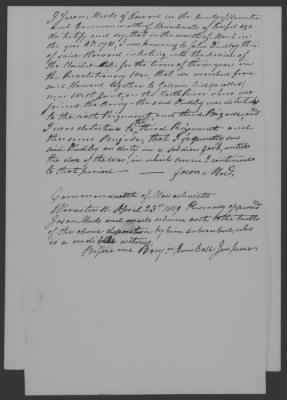 I Jason Mead of Harvard in the County of Worcester
and Commonwealth of Massachusetts of lawful age
do testify and say, that in the month of March in
the year AD 1781, I was knowing to John Dudley then
of said Harvard enlisting into the service of
the United States for the term of three years in
the Revolutionary War, that we marched from
said Harvard together to
near West Point, on the North River where we
joined the Army - the said Dudley was attached
to the sixth Regiment and third Brigade, and
I was attached to the third Regiment and
the same Brigade, that I frequently saw
said Dudley on duty in a soldiers garb, untill
the close of the War, in which service I continued
to that period — Jason Mead,
Commonwealth of Massachusetts
Worcester ss. April 23rd 1819 Personally appeared
Jason Mead and made solemn oath to the truth
of the above deposition by him subscribed, who
is a credible witness
Before me Just. Peace